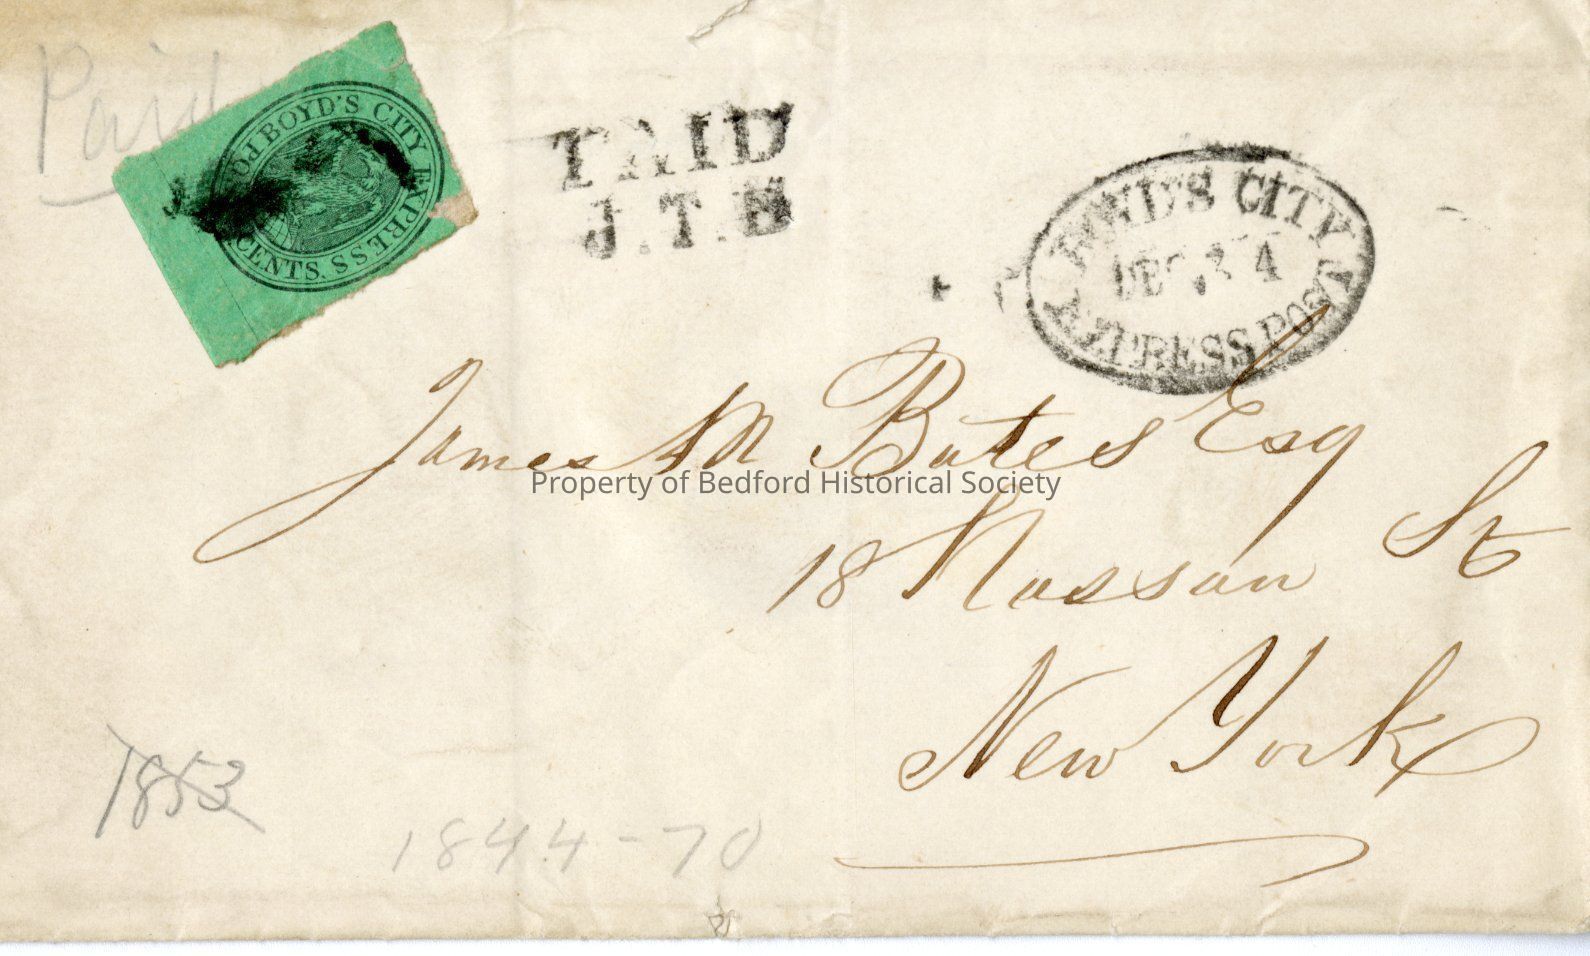 Paid
BOYD'S CITY EXPRESS POST
CENTS.
PAID
J.T.B
BOYD'S CITY EXPRESS POST
DEC 4
James M Bates Esq
Property of Bedford Historical Society
18 Nassau St
New York
1853
1844-70